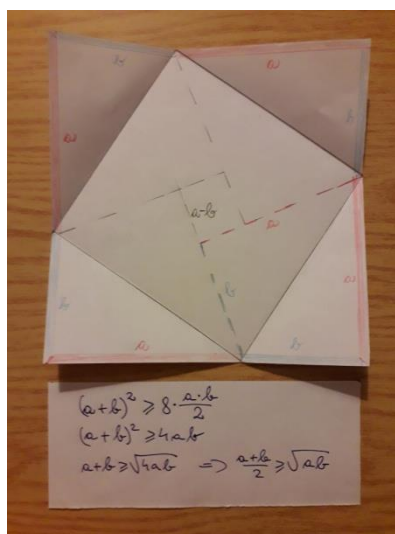 b a
a b
a-b
a
b
b a
a b
(a+b)² ⩾ 8 · a·b/2
(a+b)² ⩾ 4ab
a+b ⩾ √4ab => a+b/2 ⩾ √ab